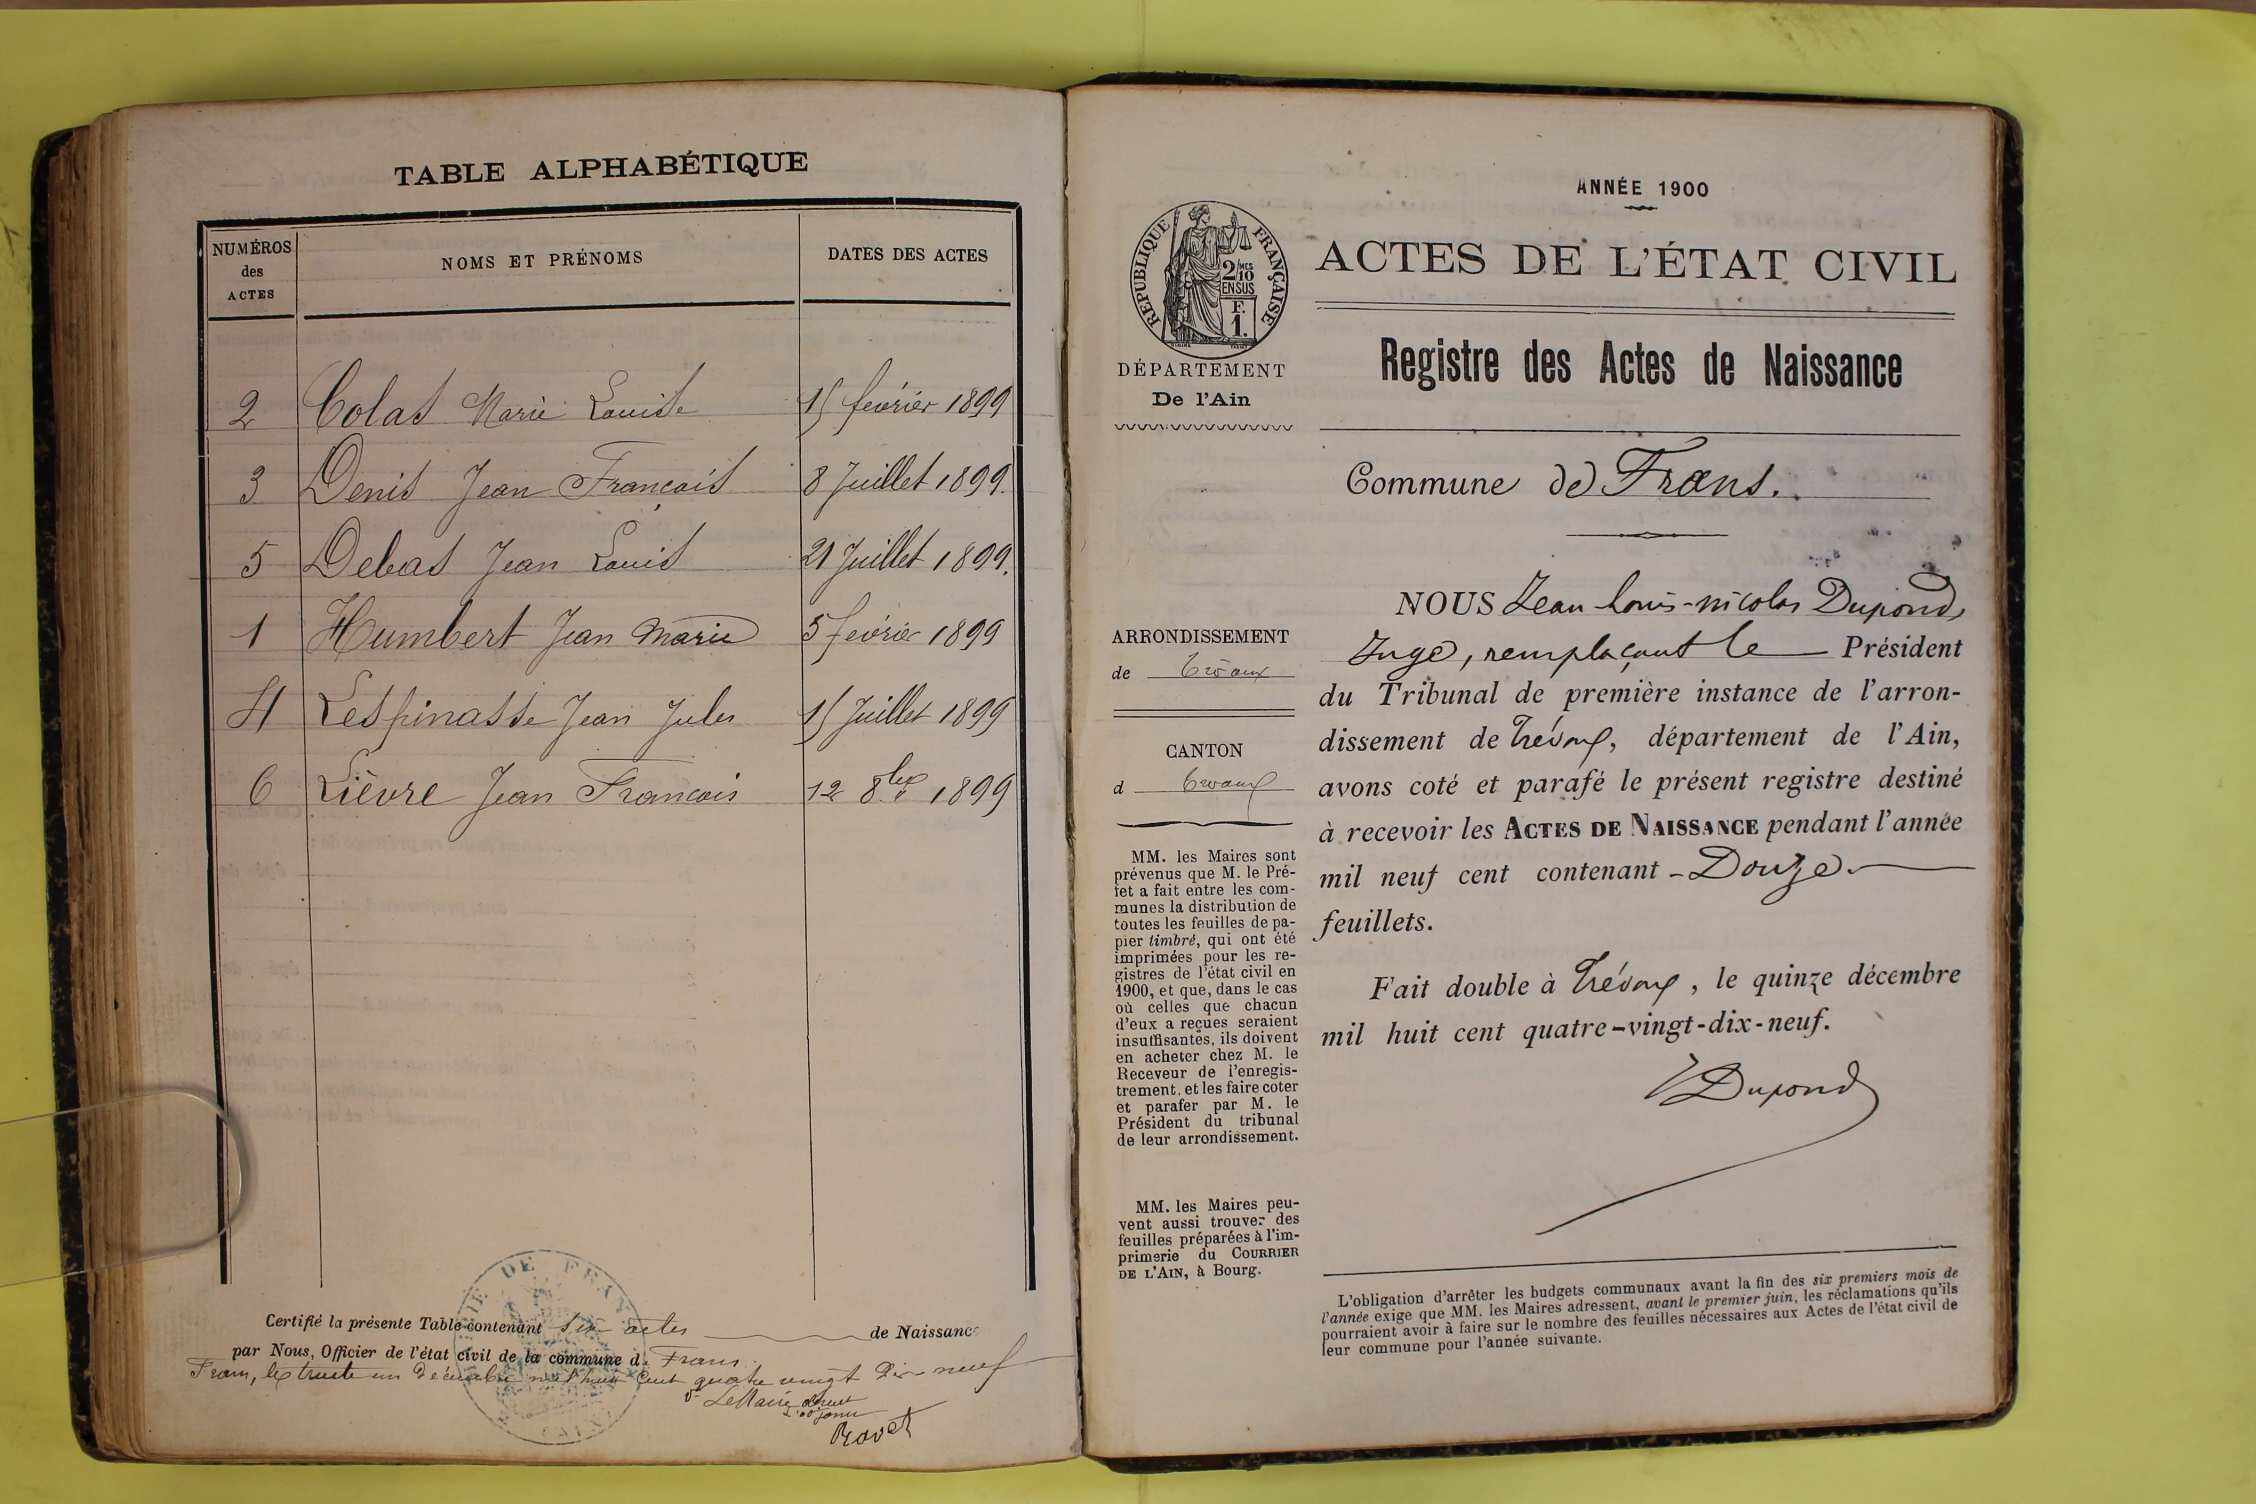 TABLE ALPHABÉTIQUE
NUMÉROS
des
ACTES
NOMS ET PRÉNOMS
DATES DES ACTES
2 Colas Marie Louise 15 février 1899
3 Denis Jean François 8 Juillet 1899.
5 Debas Jean Louis 21 Juillet 1899.
1 Humbert Jean Marie 5 février 1899
4 Lespinasse Jean Jules 15 Juillet 1899
6 Lièvre Jean François 12 8bre 1899
Certifié la présente Table contenant six actes de Naissance
par Nous, Officier de l'état civil de la commune d. Frans.
Frans, le trente un Décembre mil huit cent quatre vingt Dix-neuf
Le Maire absent
L'adjoint
Rovet
MAIRIE DE FRANS
(AIN)
ANNÉE 1900
RÉPUBLIQUE FRANÇAISE
2/10MES
EN SUS
F.
1.
DÉPARTEMENT
De l'Ain
ACTES DE L'ÉTAT CIVIL
Registre des Actes de Naissance
Commune de Frans.
ARRONDISSEMENT
de Trévoux
CANTON
d Trévoux
MM. les Maires sont
prévenus que M. le Pré-
fet a fait entre les com-
munes la distribution de
toutes les feuilles de pa-
pier timbré, qui ont été
imprimées pour les re-
gistres de l'état civil en
1900, et que, dans le cas
où celles que chacun
d'eux a reçues seraient
insuffisantes, ils doivent
en acheter chez M. le
Receveur de l'enregis-
trement, et les faire coter
et parafer par M. le
Président du tribunal
de leur arrondissement.
MM. les Maires peu-
vent aussi trouver des
feuilles préparées à l'im-
primerie du COURRIER
DE L'AIN, à Bourg.
NOUS Jean Louis-Nicolas Dupond,
Juge, remplaçant le Président
du Tribunal de première instance de l'arron-
dissement de Trévoux, département de l'Ain,
avons coté et parafé le présent registre destiné
à recevoir les ACTES DE NAISSANCE pendant l'année
mil neuf cent contenant - Douze
feuillets.
Fait double à Trévoux, le quinze décembre
mil huit cent quatre-vingt-dix-neuf.
Dupond
L'obligation d'arrêter les budgets communaux avant la fin des six premiers mois de
l'année exige que MM. les Maires adressent, avant le premier juin, les réclamations qu'ils
pourraient avoir à faire sur le nombre des feuilles nécessaires aux Actes de l'état civil de
leur commune pour l'année suivante.